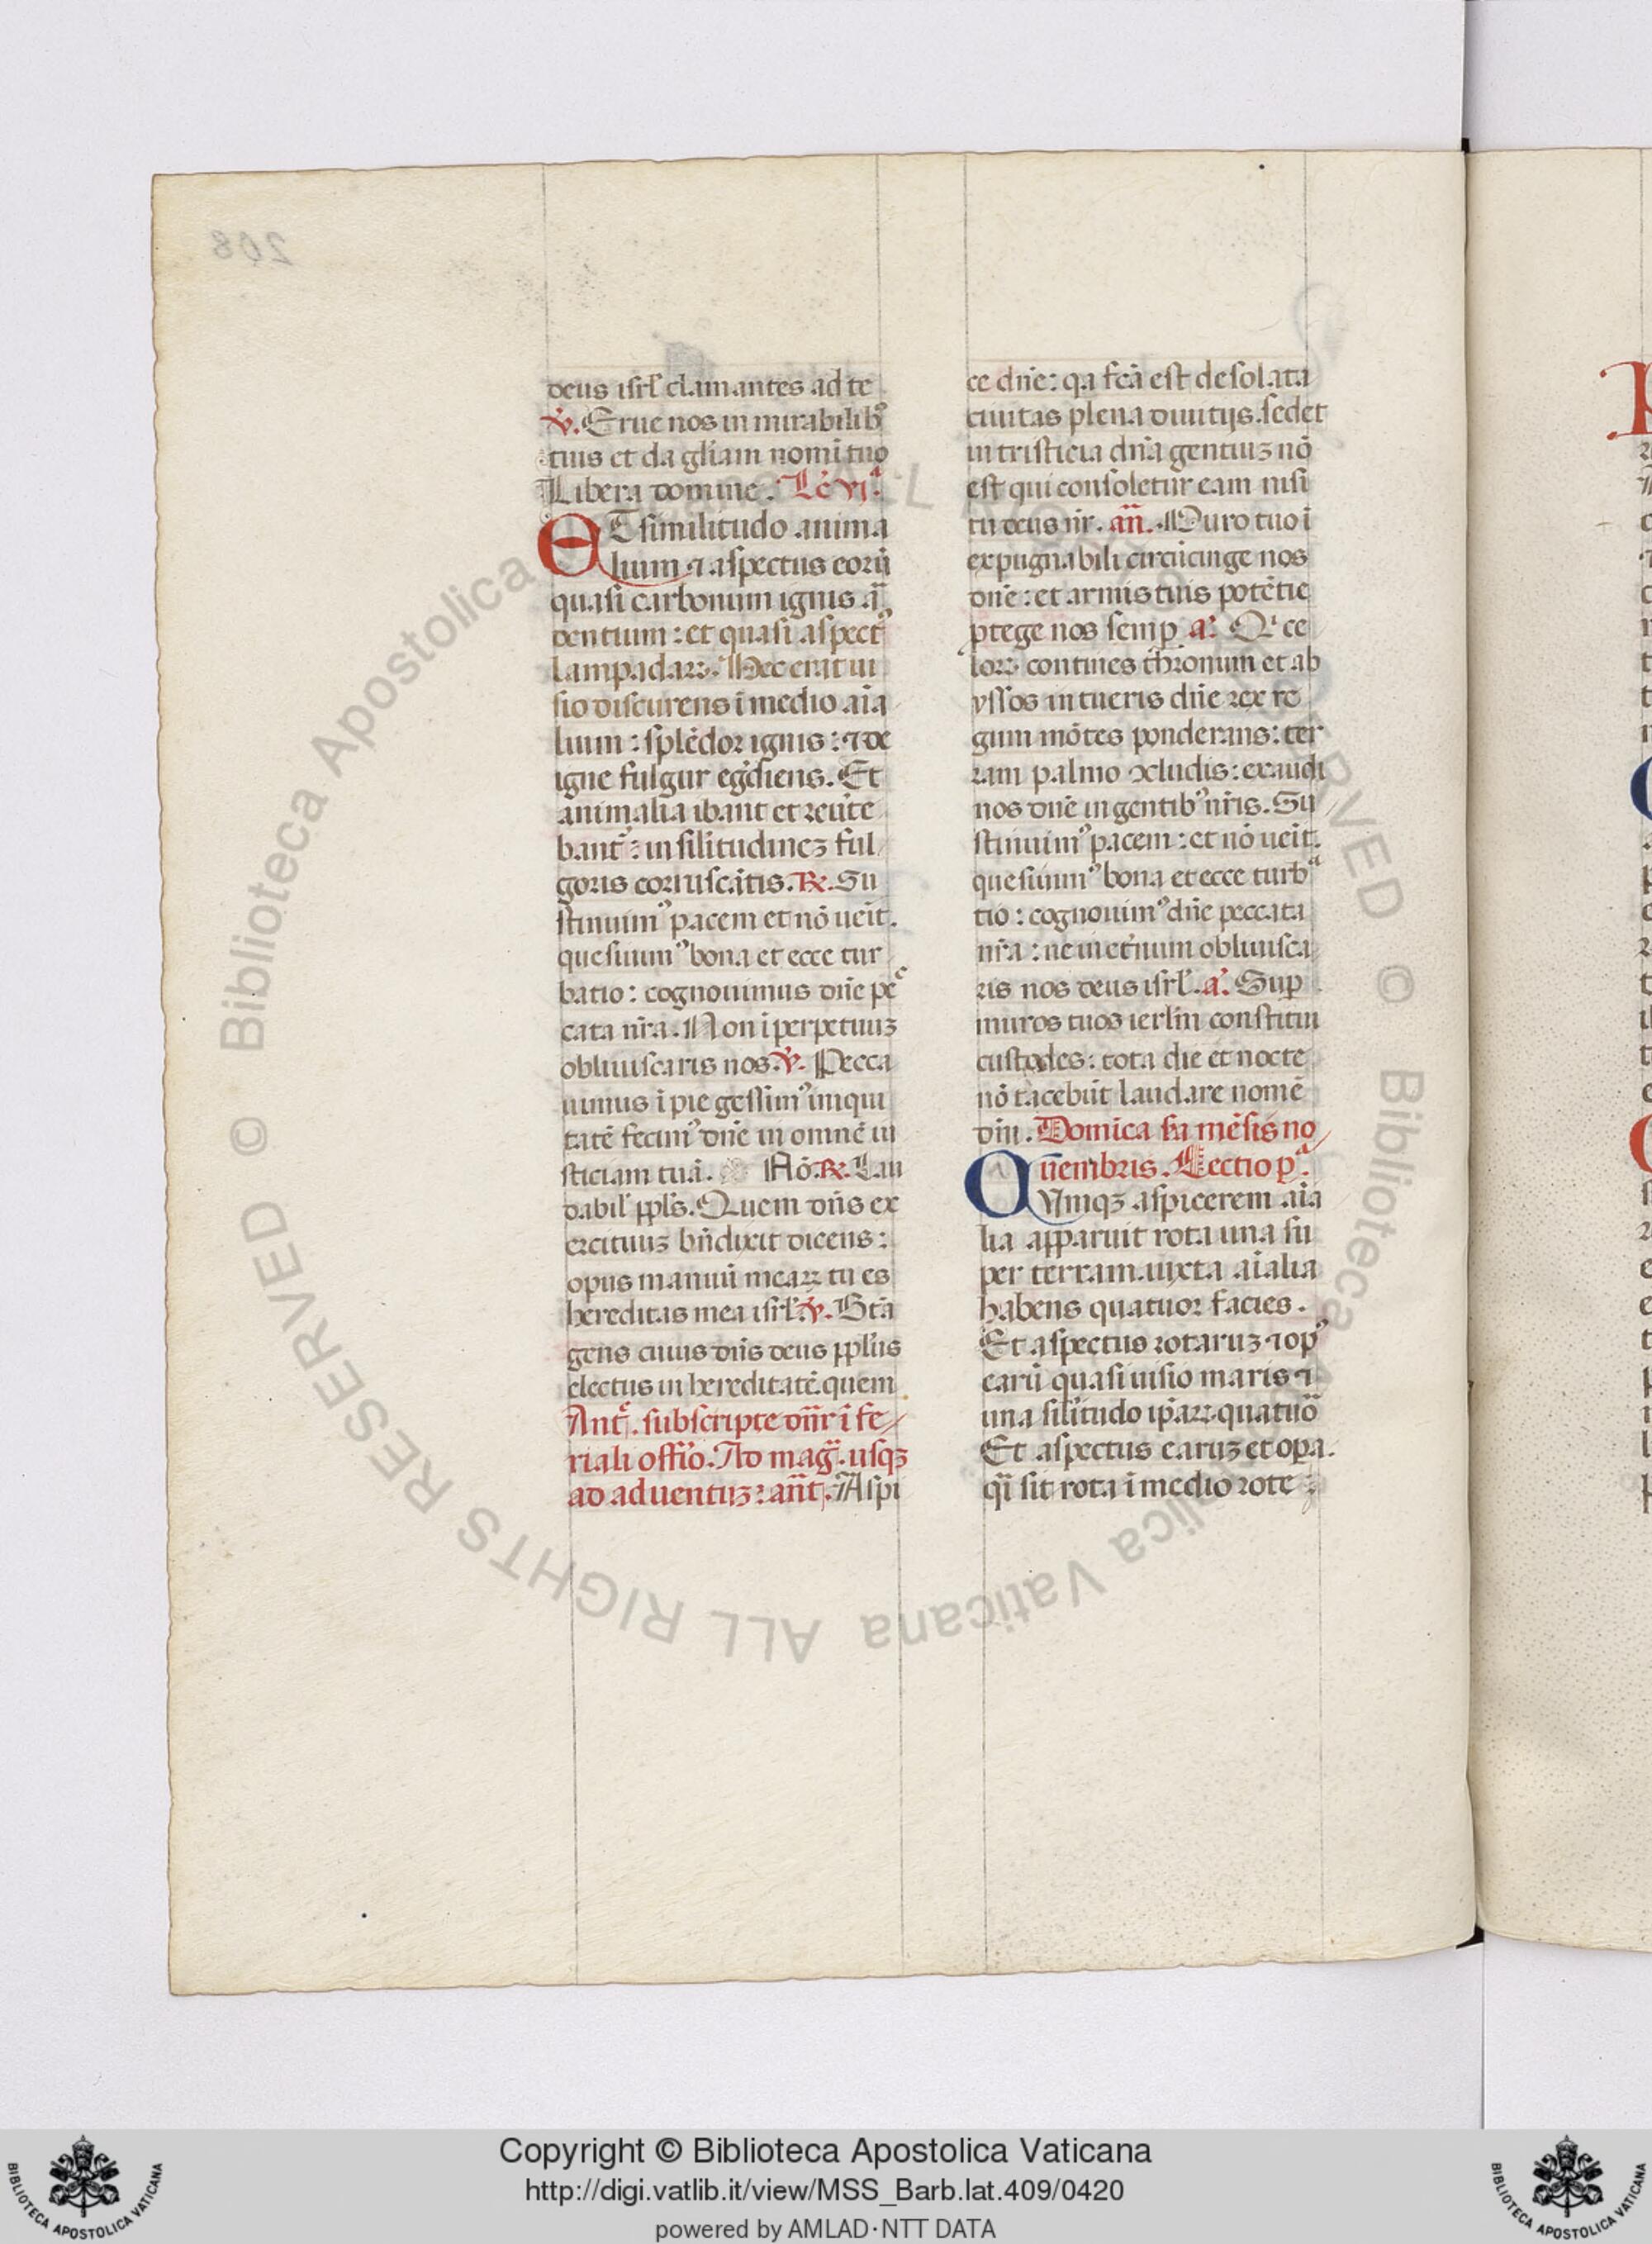 deus isrl̃ clamantes ad te
℣. Erue nos in mirabilibꝰ
tuis et da gl̃iam nomĩ tuo
Libera domine. Lc̃ vjᵃ.
ET similitudo anima
lium ⁊ aspectus eorũ
quasi carbonum ignis a᷑
dentium: et quasi aspectꝰ
lampadaꝝ. Hec erat ui
sio discurens ĩ medio aĩa
lium: splẽdor ignis: ⁊ de
igne fulgur eg̃diens. Et
animalia ibant et reũte
bant᷑: in silĩtudinez ful
goris corruscãtis. ℟. Su
stinuimꝰ pacem et nõ ueĩt.
quesiuimꝰ bona et ecce tur
batio: cognouimus dñe pec
cata nr̃a. Non ĩ perpetuuz
obliuiscaris nos. ℣. Pecca
uimus ĩpie gessimꝰ iniqui
tatẽ fecimꝰ dñe in omnẽ iu
sticiam tuã. Nõ. ℟. Lau
dabil̃ ppl̃s. Quem dñs ex
ercituuz bñdixit dicens:
opus manuũ meaꝝ tu es
hereditas mea isrl̃. ℣. Btã
gens cuius dñs deus ppl̃us
electus in hereditatẽ. quem
Ant᷑. subscripte dñr ĩ fe
riali offĩo. Ad mag᷑. usqꝫ
ad aduentuz: añt. Aspi
ce dñe: qa fcã est desolata
ciuitas plena diuitijs. sedet
in tristicia dñã gentiuz nõ
est qui consoletur eam nisi
tu deus nr̃. añ. Muro tuo ĩ
expugnabili circũcinge nos
dñe: et armis tuis potẽtie
ꝓtege nos semꝑ. a᷑. Qᵢ ce
loꝝ contines thronum et ab
yssos intueris dñe rex re
gum mõtes ponderans: ter
ram palmo ꝯcludis: exaudi
nos dñe in gentibꝰ nr̃is. Su
stinuimꝰ pacem: et nõ ueĩt.
quesiuimꝰ bona et ecce turbᵃ
tio: cognouimꝰ dñe peccata
nr̃a: ne in et̃num obliuisca
ris nos deus isrl̃. a᷑. Suꝑ
muros tuos ierl̃m constitui
custodes: tota die et nocte
nõ tacebũt laudare nomẽ
dñi. Domĩca scd̃a mẽsis no
uẽmbris. Lectio pᵃ.
QUmqꝫ aspicerem aĩa
lia apparuit rota una su
per terram. iuxta aĩalia
habens quatuor facies.
Et aspectus rotaruz ⁊ opꝰ
earũ quasi uisio maris ⁊
una silĩtudo ip̃aꝝ quatuõ
Et aspectus earuz et oꝑa.
qĩ sit rota ĩ medio rote
208
© Biblioteca Apostolica Vaticana ALL RIGHTS RESERVED
Copyright © Biblioteca Apostolica Vaticana
http://digi.vatlib.it/view/MSS_Barb.lat.409/0420
powered by AMLAD·NTT DATA
BIBLIOTECA APOSTOLICA VATICANA
BIBLIOTECA APOSTOLICA VATICANA